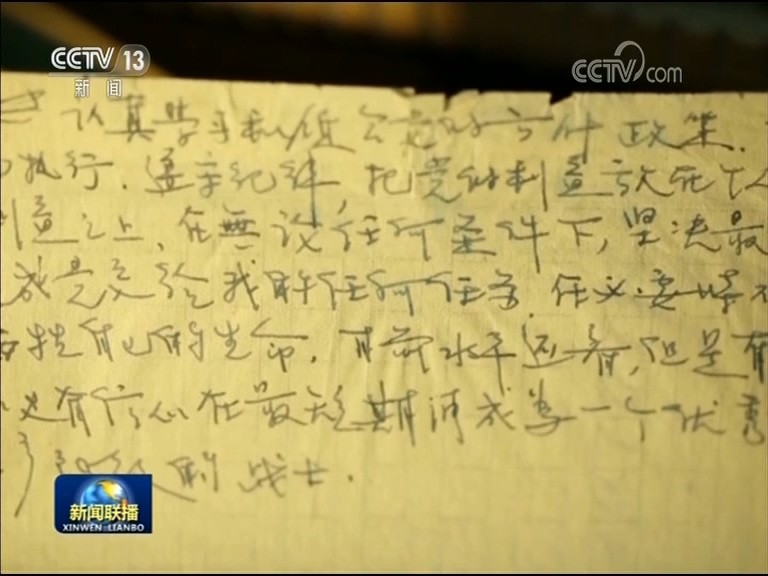 CCTV 13
新闻
CCTV.com
认真学习和领会党的方针政策.
执行.遵守纪律,把党的利益放在个人
利益之上,在無论任何条件下,坚决最
成党交给我的任何任务.在必要時不
牺牲自己的生命.目前水平还差,但是有
有信心在最短期间成为一个优秀
的战士.
新闻联播
XINWEN LIANBO